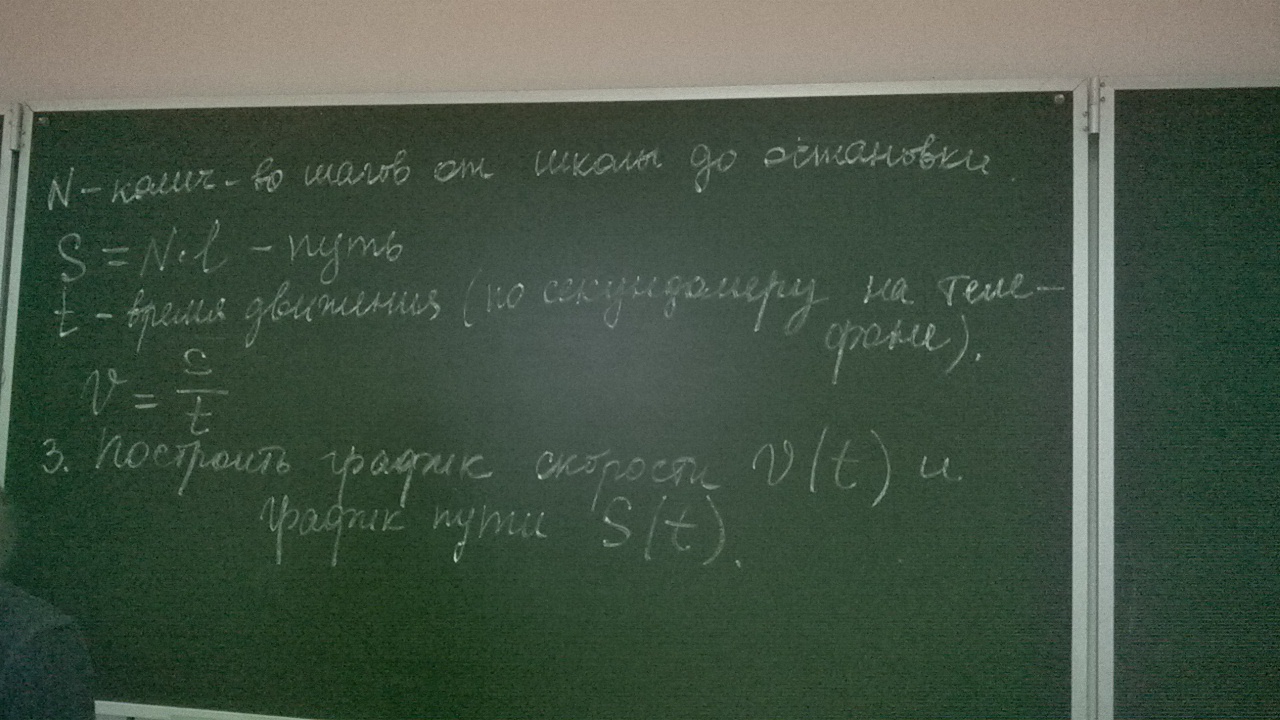 N - колич-во шагов от школы до остановки.
S = N·l - путь
t - время движения (по секундомеру на теле-
фоне).
V = S/t
3. Построить график скорости V(t) и
график пути S(t).